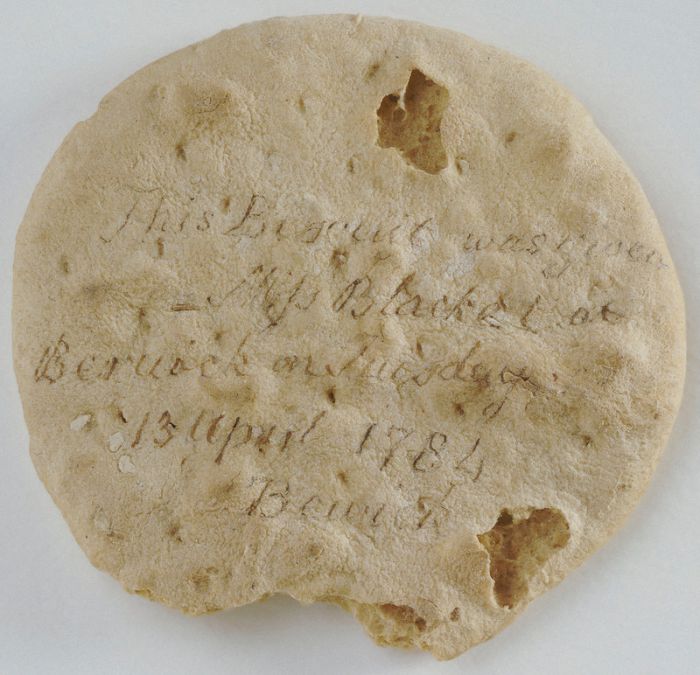 This Biscuit was given
– Miss Blacket at
Berwick on Tuisday
13 April 1784
Berwick